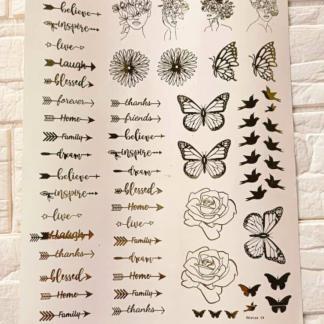 believe
inspire
live
laugh
blessed
forever
Home
Family
dream
believe
inspire
live
Laugh
thanks
blessed
Home
Family
thanks
friends
believe
inspire
dream
blessed
Home
live
Family
dream
Home
Family
thanks